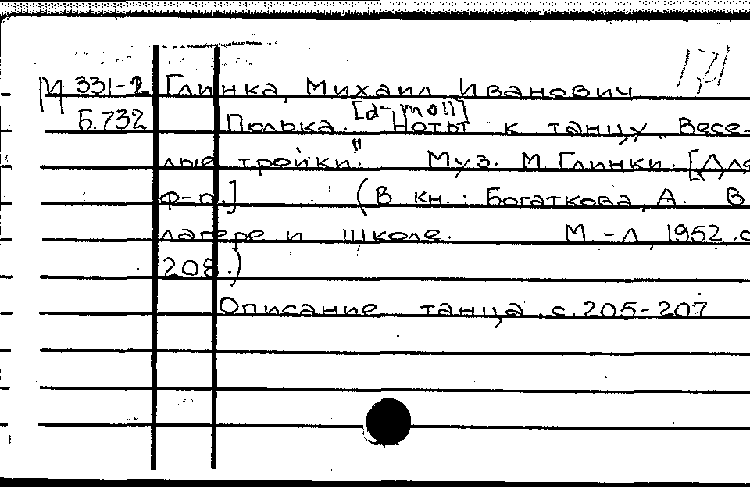 171
М 331-2 Глинка, Михаил Иванович
Б.732 Полька. [d-moll] Ноты к танцу „Весе-
лые тройки". Муз. М. Глинки. [Для
ф-п.] (В кн.: Богаткова, А. В
лагере и школе. М.-Л, 1952. с.
208.)
Описание танца с. 205-207